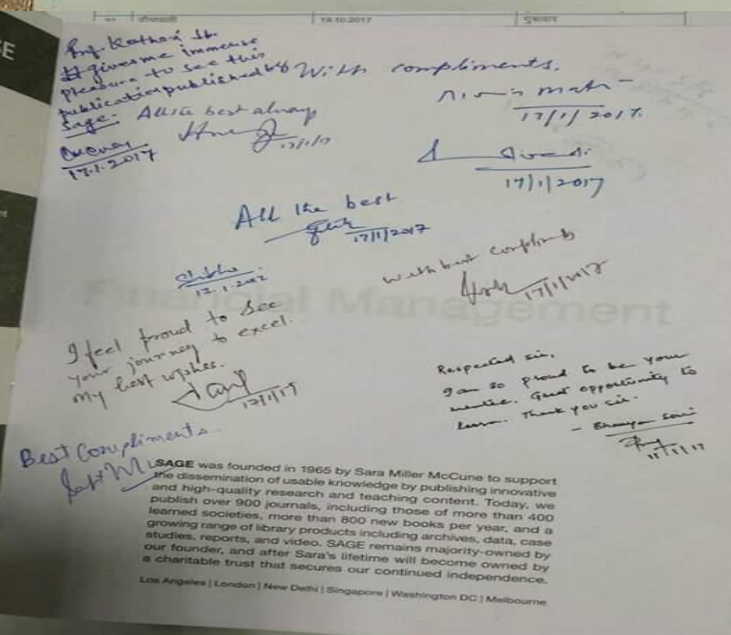 दीपावली 19.10.2017 गुरूवार
Prof. Kothari Sb.
It gives me immense
pleasure to see this
publication published by
Sage.
17.1.2017
With compliments.
17/1/2017.
All the best always
17/1/17
17/1/2017
All the best
17/1/2017
17.1.2017
with best compliments
17/1/2017
Financial Management
I feel proud to see
your journey to excel.
My best wishes.
17/1/17
Respected sir,
I am so proud to be your
mentee. Great opportunity to
learn. Thank you sir.
17/1/17
Best Compliments.
SAGE was founded in 1965 by Sara Miller McCune to support
the dissemination of usable knowledge by publishing innovative
and high-quality research and teaching content. Today, we
publish over 900 journals, including those of more than 400
learned societies, more than 800 new books per year, and a
growing range of library products including archives, data, case
studies, reports, and video. SAGE remains majority-owned by
our founder, and after Sara's lifetime will become owned by
a charitable trust that secures our continued independence.
Los Angeles | London | New Delhi | Singapore | Washington DC | Melbourne